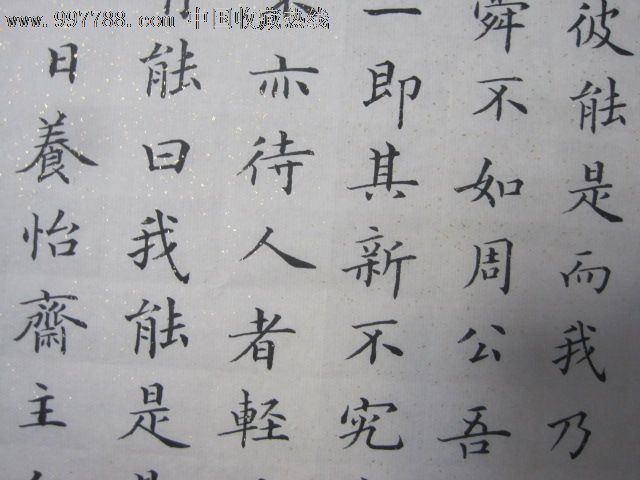 www.997788.com 中国收藏热线
彼能是而我乃
舜不如周公吾
一即其新不究
亦待人者軽
能曰我能是
日養怡齋主